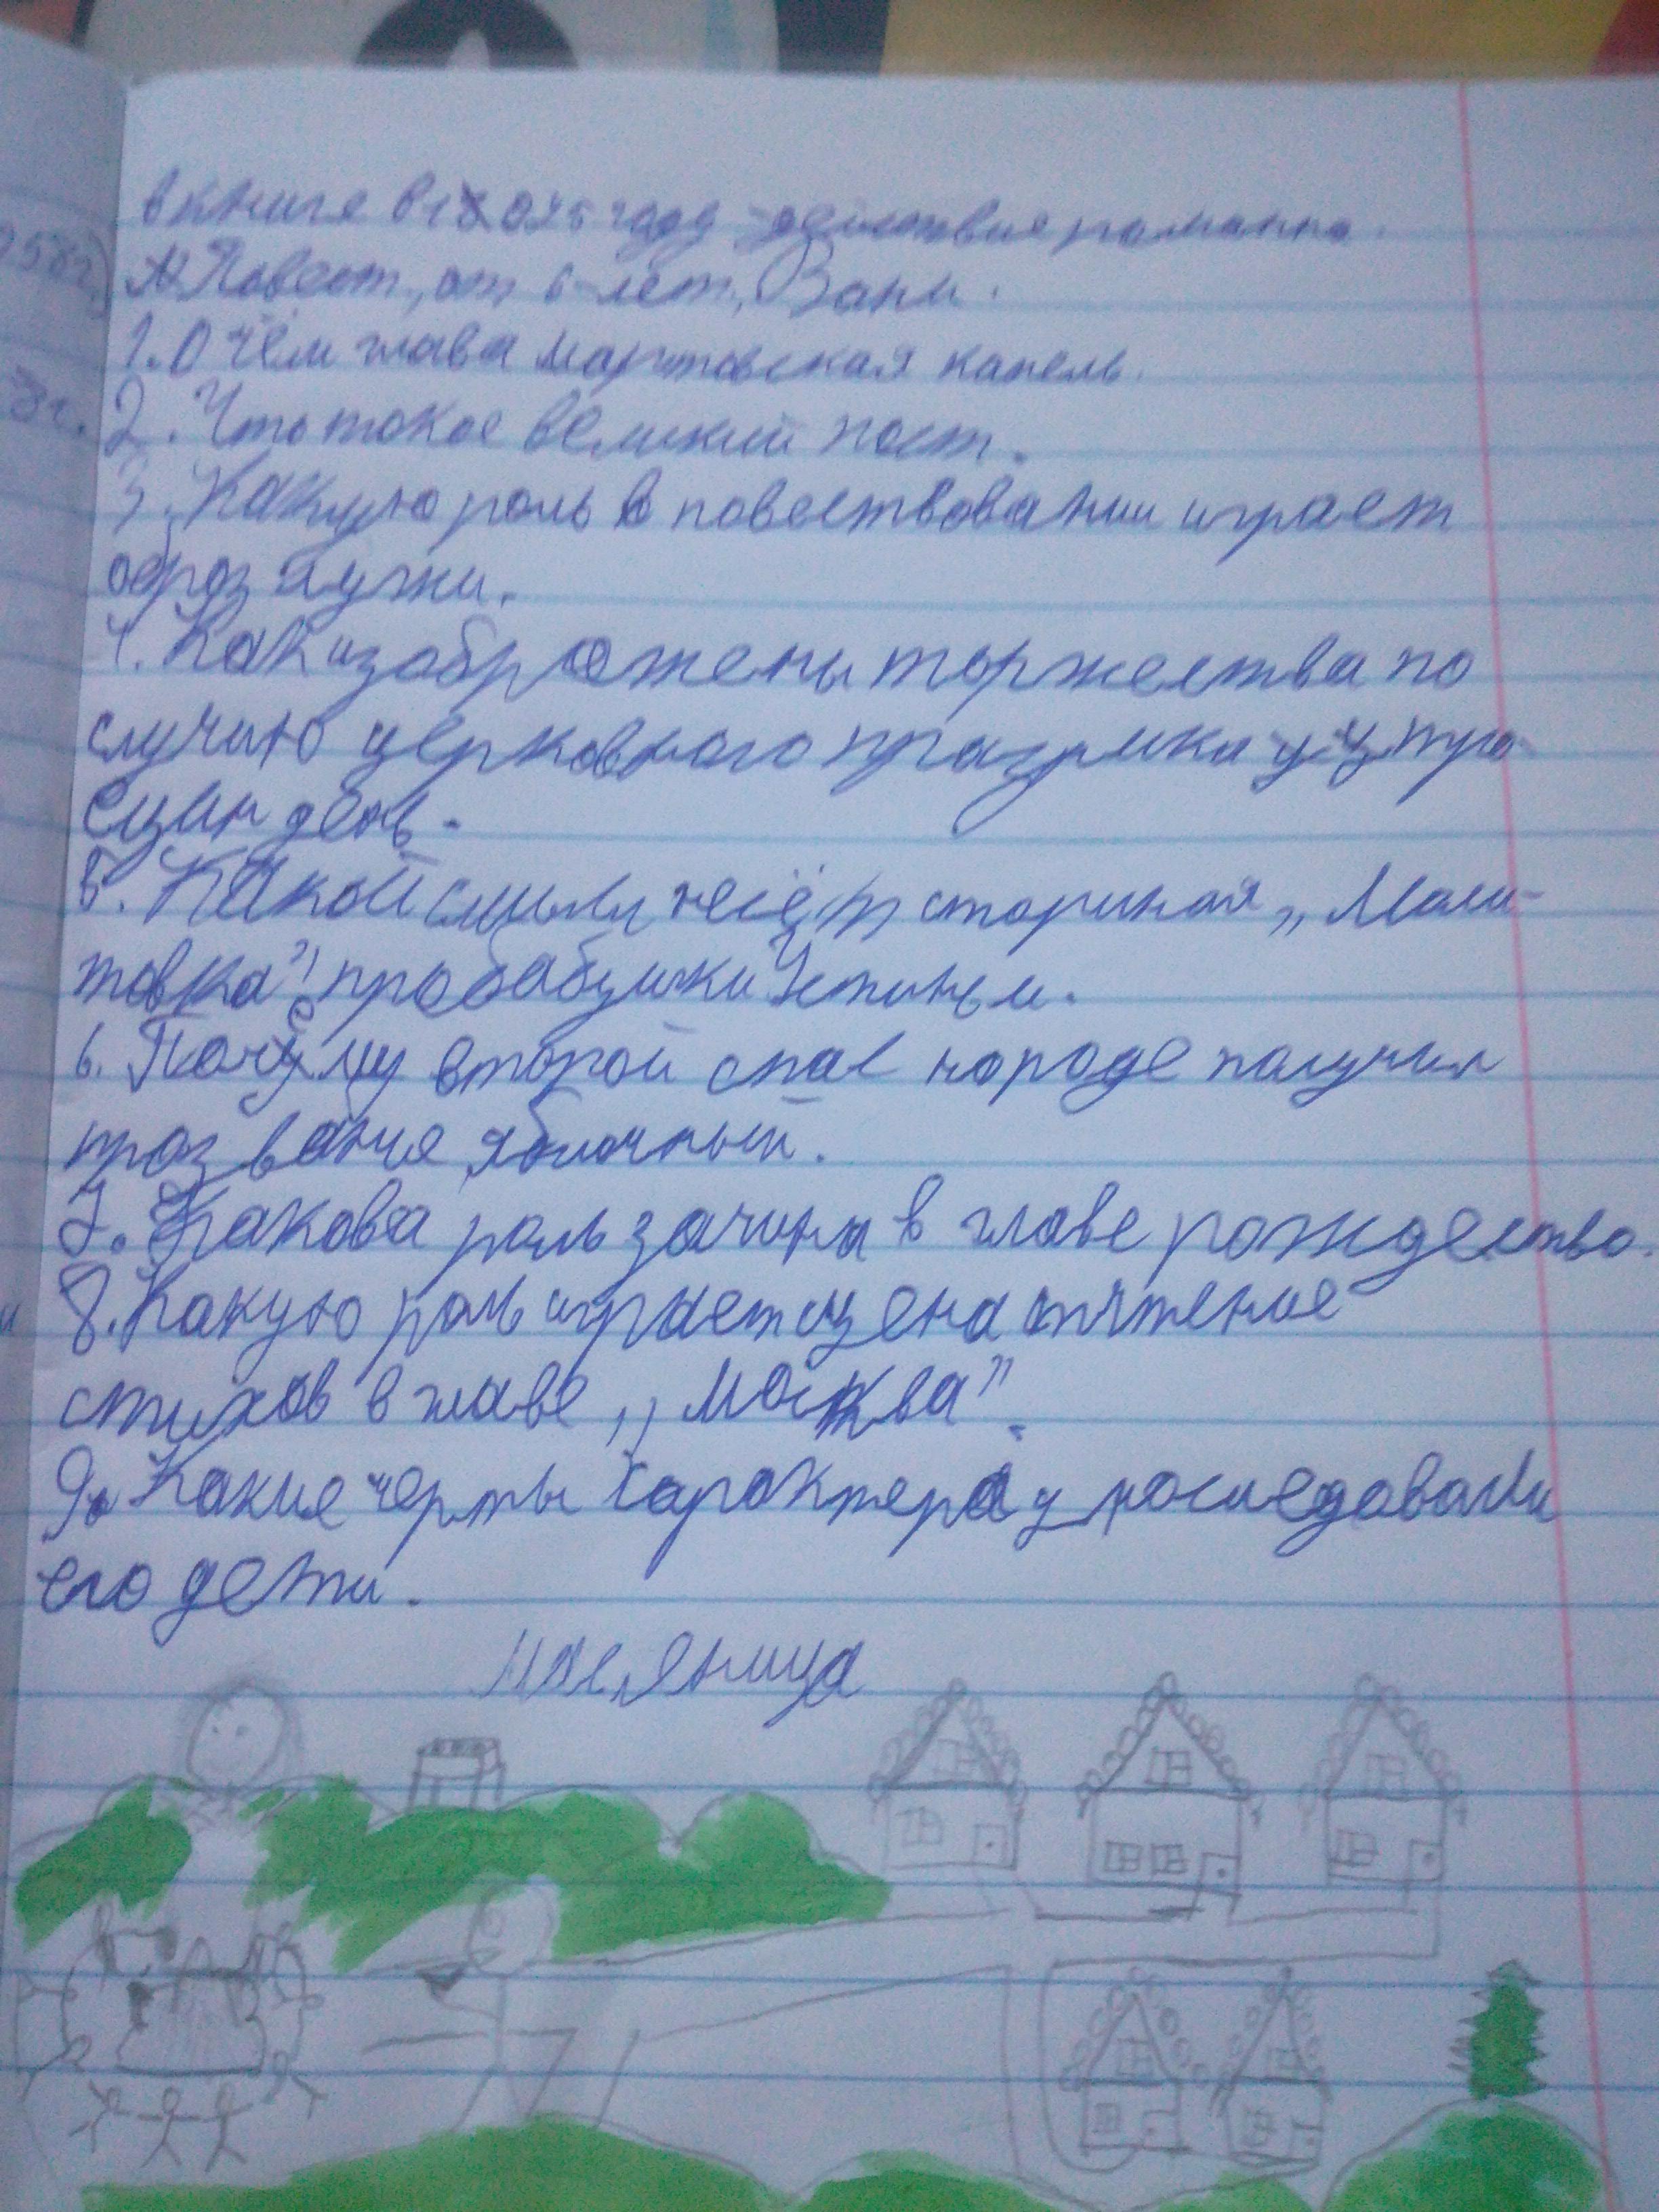 в книге в 18 025 году действие романна.
Повест, от 6-лет, Вани.
1. О чём глава мартовская капель.
2. Что токое великий пост.
3. Какую роль в повествовании играет
оброз лужи.
4. Как изоброжены торжества по
случию церковного празрика
день.
5. Какой смысл несёт сториная „Моли-
товка" пробабушки Устиньи.
6. Почему второй спас нороде получил
прозвание яблочный.
7. Какова роль зачина в главе рождество.
8. Какую роль играет сцена чтение
стихов в главе „Москва".
9. Какие черты характера унаследовали
его дети.
Масленица